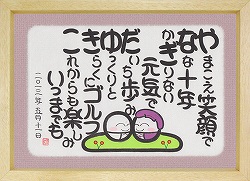 やまこえ笑顔で
なな十年
かぎりない
元気で
だいち歩み
ゆっくりと
きらくにゴルフ
これからも楽しみ
いつまでも